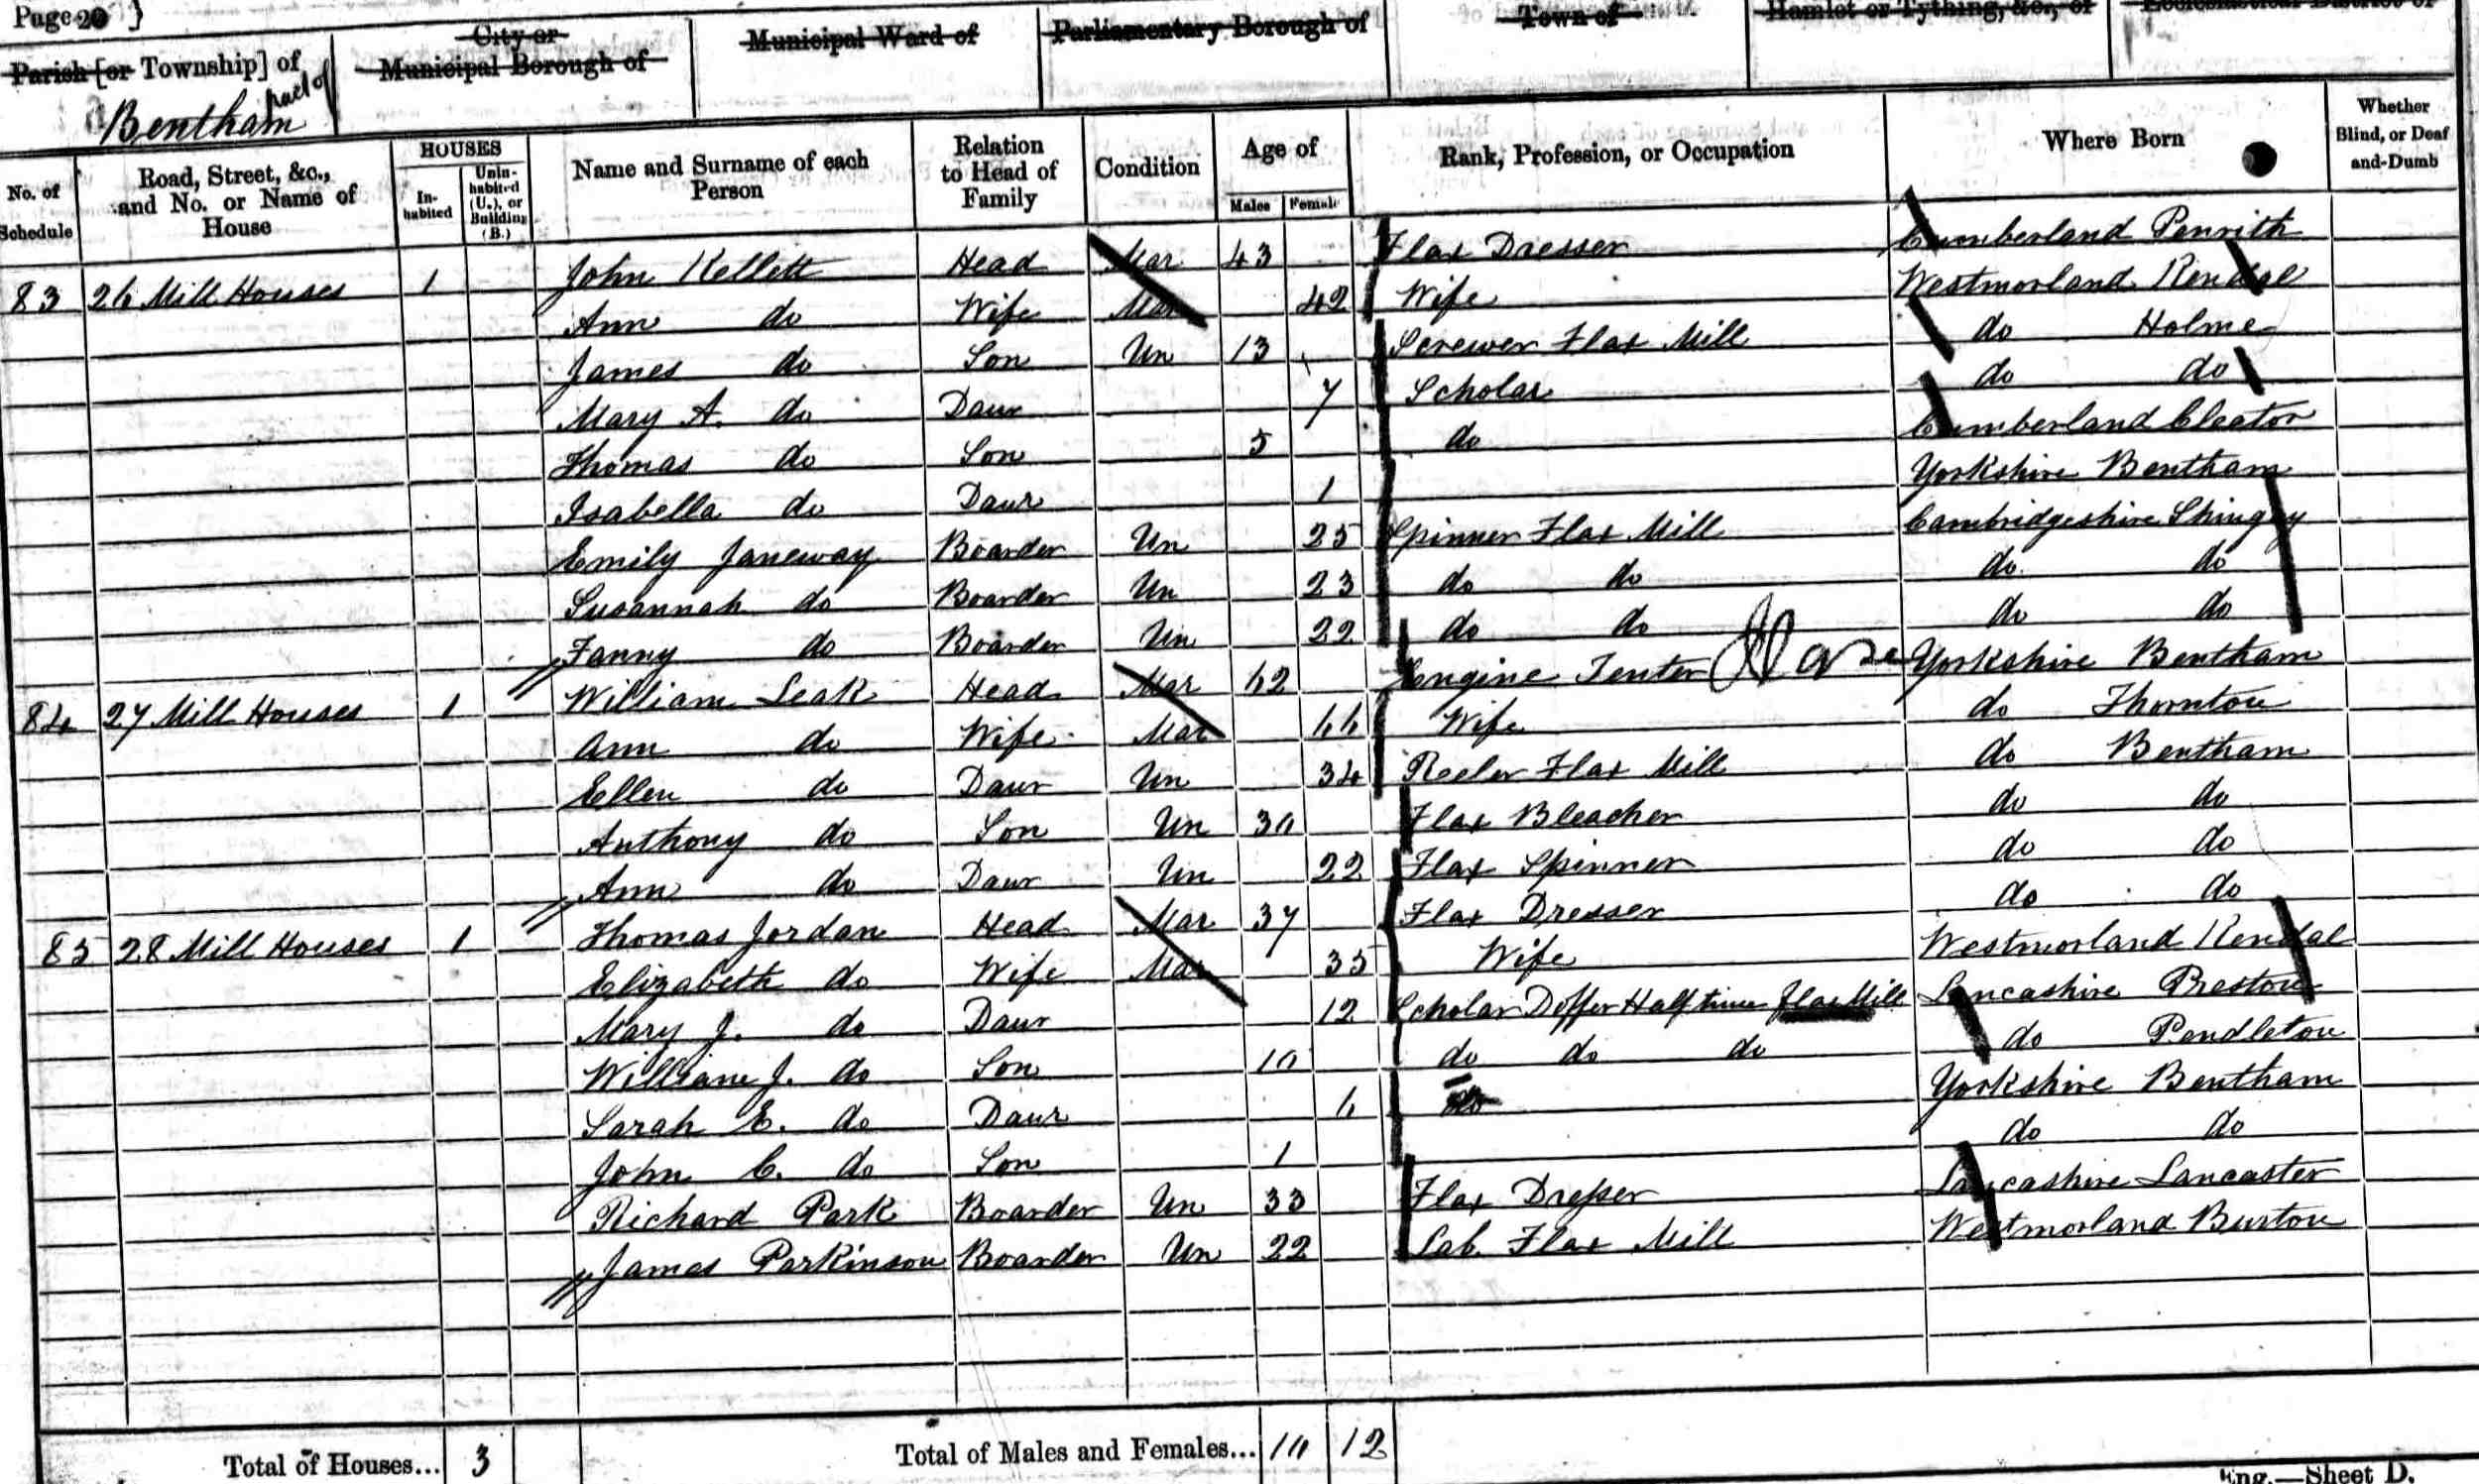 Page 20 }
Parish [or Township] of City or Municipal Borough of Municipal Ward of Parliamentary Borough of Town of Hamlet or Tything, &c., of Ecclesiastical District of
Bentham part of
No. of Schedule Road, Street, &c., and No. or Name of House HOUSES Inhabited Uninhabited (U.), or Building (B.) Name and Surname of each Person Relation to Head of Family Condition Age of Males Females Rank, Profession, or Occupation Where Born Whether Blind, or Deaf and-Dumb
83 26 Mill Houses 1 John Kellett Head Mar 43 Flax Dresser Cumberland Penrith
Ann do Wife Mar 42 Wife Westmorland Kendal
James do Son Un 13 Screwer Flax Mill do Holme
Mary A. do Daur 7 Scholar do do
Thomas do Son 5 do Cumberland Cleator
Isabella do Daur 1 Yorkshire Bentham
Emily Janeway Boarder Un 25 Spinner Flax Mill Cambridgeshire Shingay
Susannah do Boarder Un 23 do do do do
Fanny do Boarder Un 22 do do do do
84 27 Mill Houses 1 William Leak Head Mar 62 Engine Tenter Yorkshire Bentham
Ann do Wife Mar 66 Wife do Thornton
Ellen do Daur Un 34 Reeler Flax Mill do Bentham
Anthony do Son Un 30 Flax Bleacher do do
Ann do Daur Un 22 Flax Spinner do do
85 28 Mill Houses 1 Thomas Jordan Head Mar 37 Flax Dresser do do
Elizabeth do Wife Mar 35 Wife Westmorland Kendal
Mary J. do Daur 12 Scholar Doffer Half time Flax Mill Lancashire Preston
William J. do Son 10 do do do do Pendleton
Sarah E. do Daur 6 do Yorkshire Bentham
John C. do Son 1 do do
Richard Park Boarder Un 33 Flax Dresser Lancashire Lancaster
James Parkinson Boarder Un 22 Lab Flax Mill Westmorland Burton
Total of Houses... 3 Total of Males and Females... 10 12
Eng.—Sheet D.